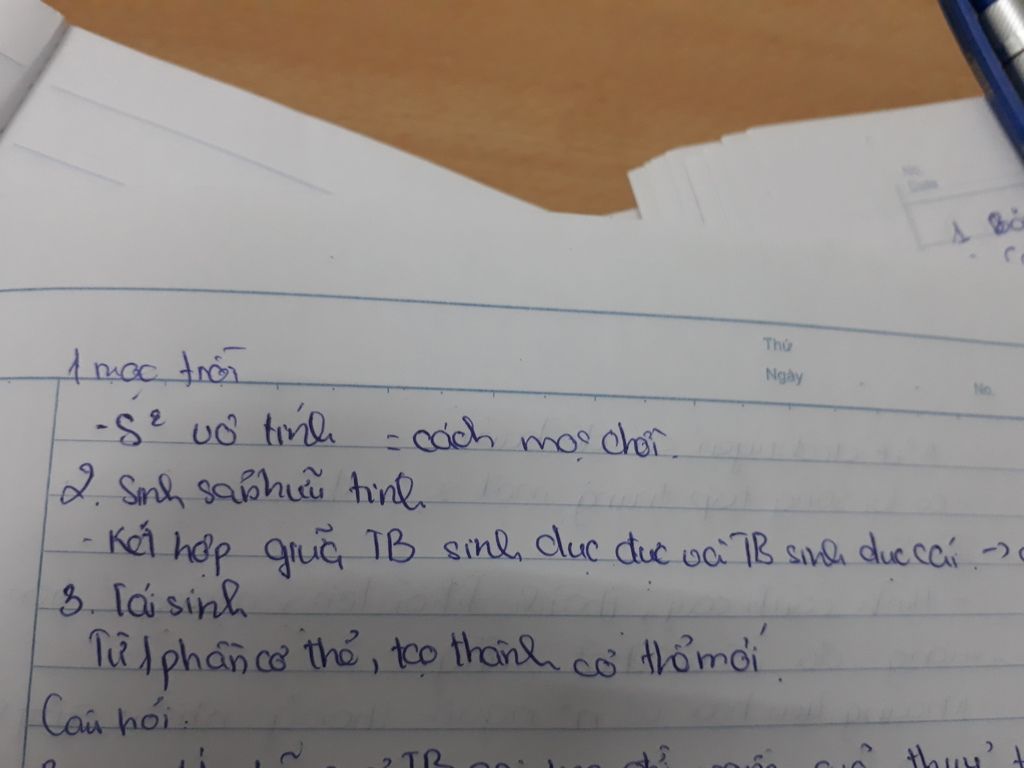 No.
Date
1 Bò
Thứ
Ngày
No.
1 mọc trồi
- S² vô tính = cách mọc chồi.
2. Sinh sản hữu tính
- Kết hợp giữa TB sinh dục đực và TB sinh dục cái →
3. Tái sinh
Từ 1 phần cơ thể, tạo thành cơ thể mới.
Câu hỏi:
TB